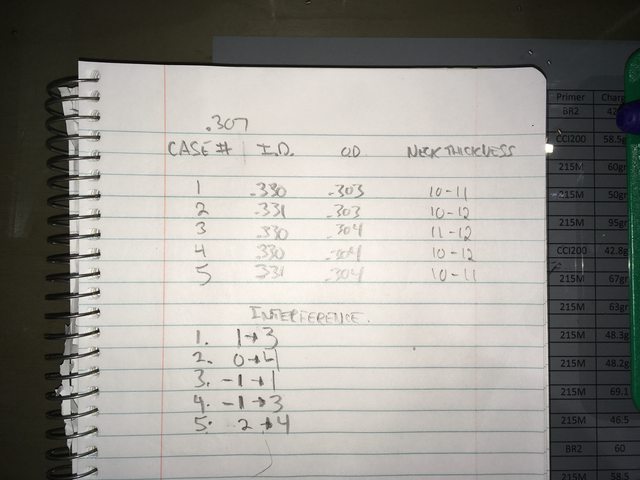 .307
CASE # I.D. OD NECK THICKNESS
1 .330 .303 10-11
2 .331 .303 10-12
3 .330 .304 11-12
4 .330 .304 10-12
5 .331 .304 10-11
INTERFERENCE.
1. 1→3
2. 0→4
3. -1→1
4. -1→3
5. 2→4
Primer
BR2
CCI200 58.5g
215M 60gr
215M 50gr
215M 95gr
CCI200 42.8g
215M 67gr
215M 63gr
215M 48.3g
215M 48.2g
215M 69.1
215M 46.5
BR2 60
215M 58.5